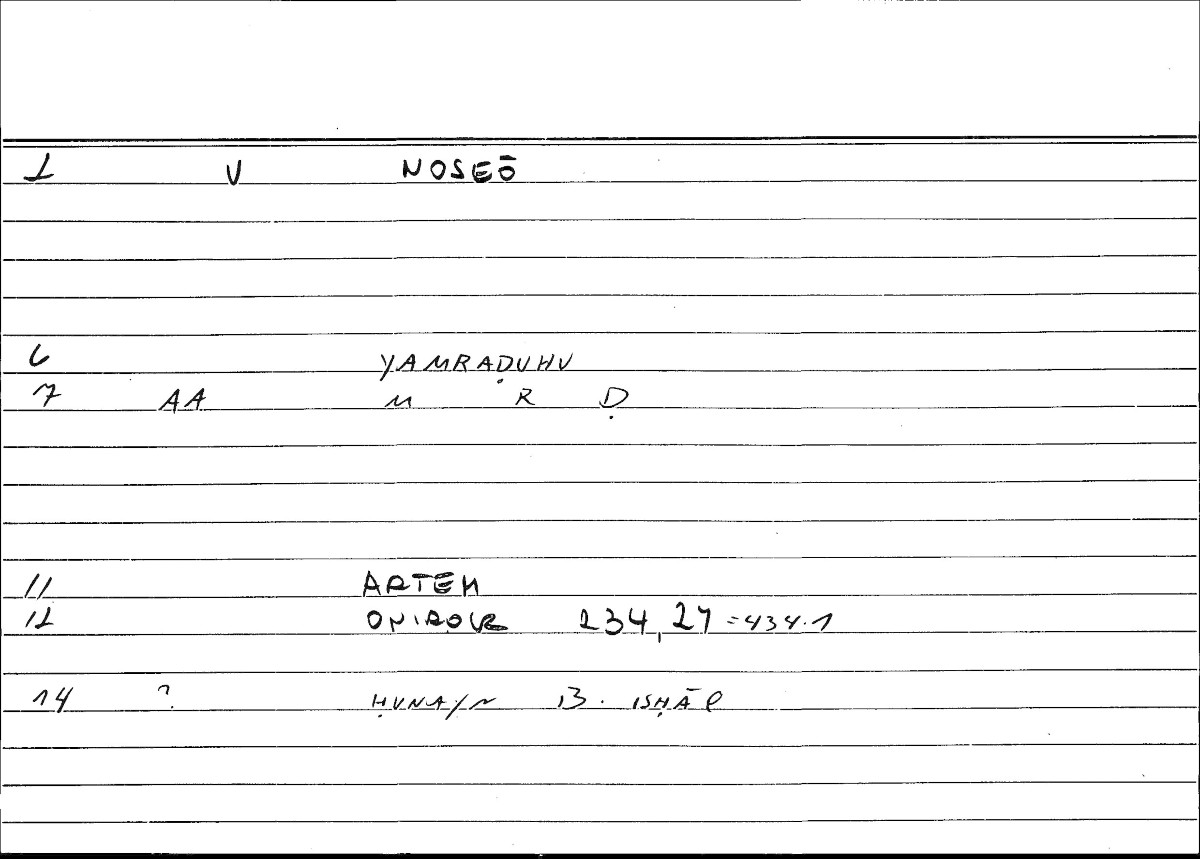 1 V NOSEŌ
6 YAMRAḌUHU
7 AA M R Ḍ
11 ARTEM
12 ONIROCR 234,27 =434.1
14 ? ḤUNAYN B. ISḤĀQ